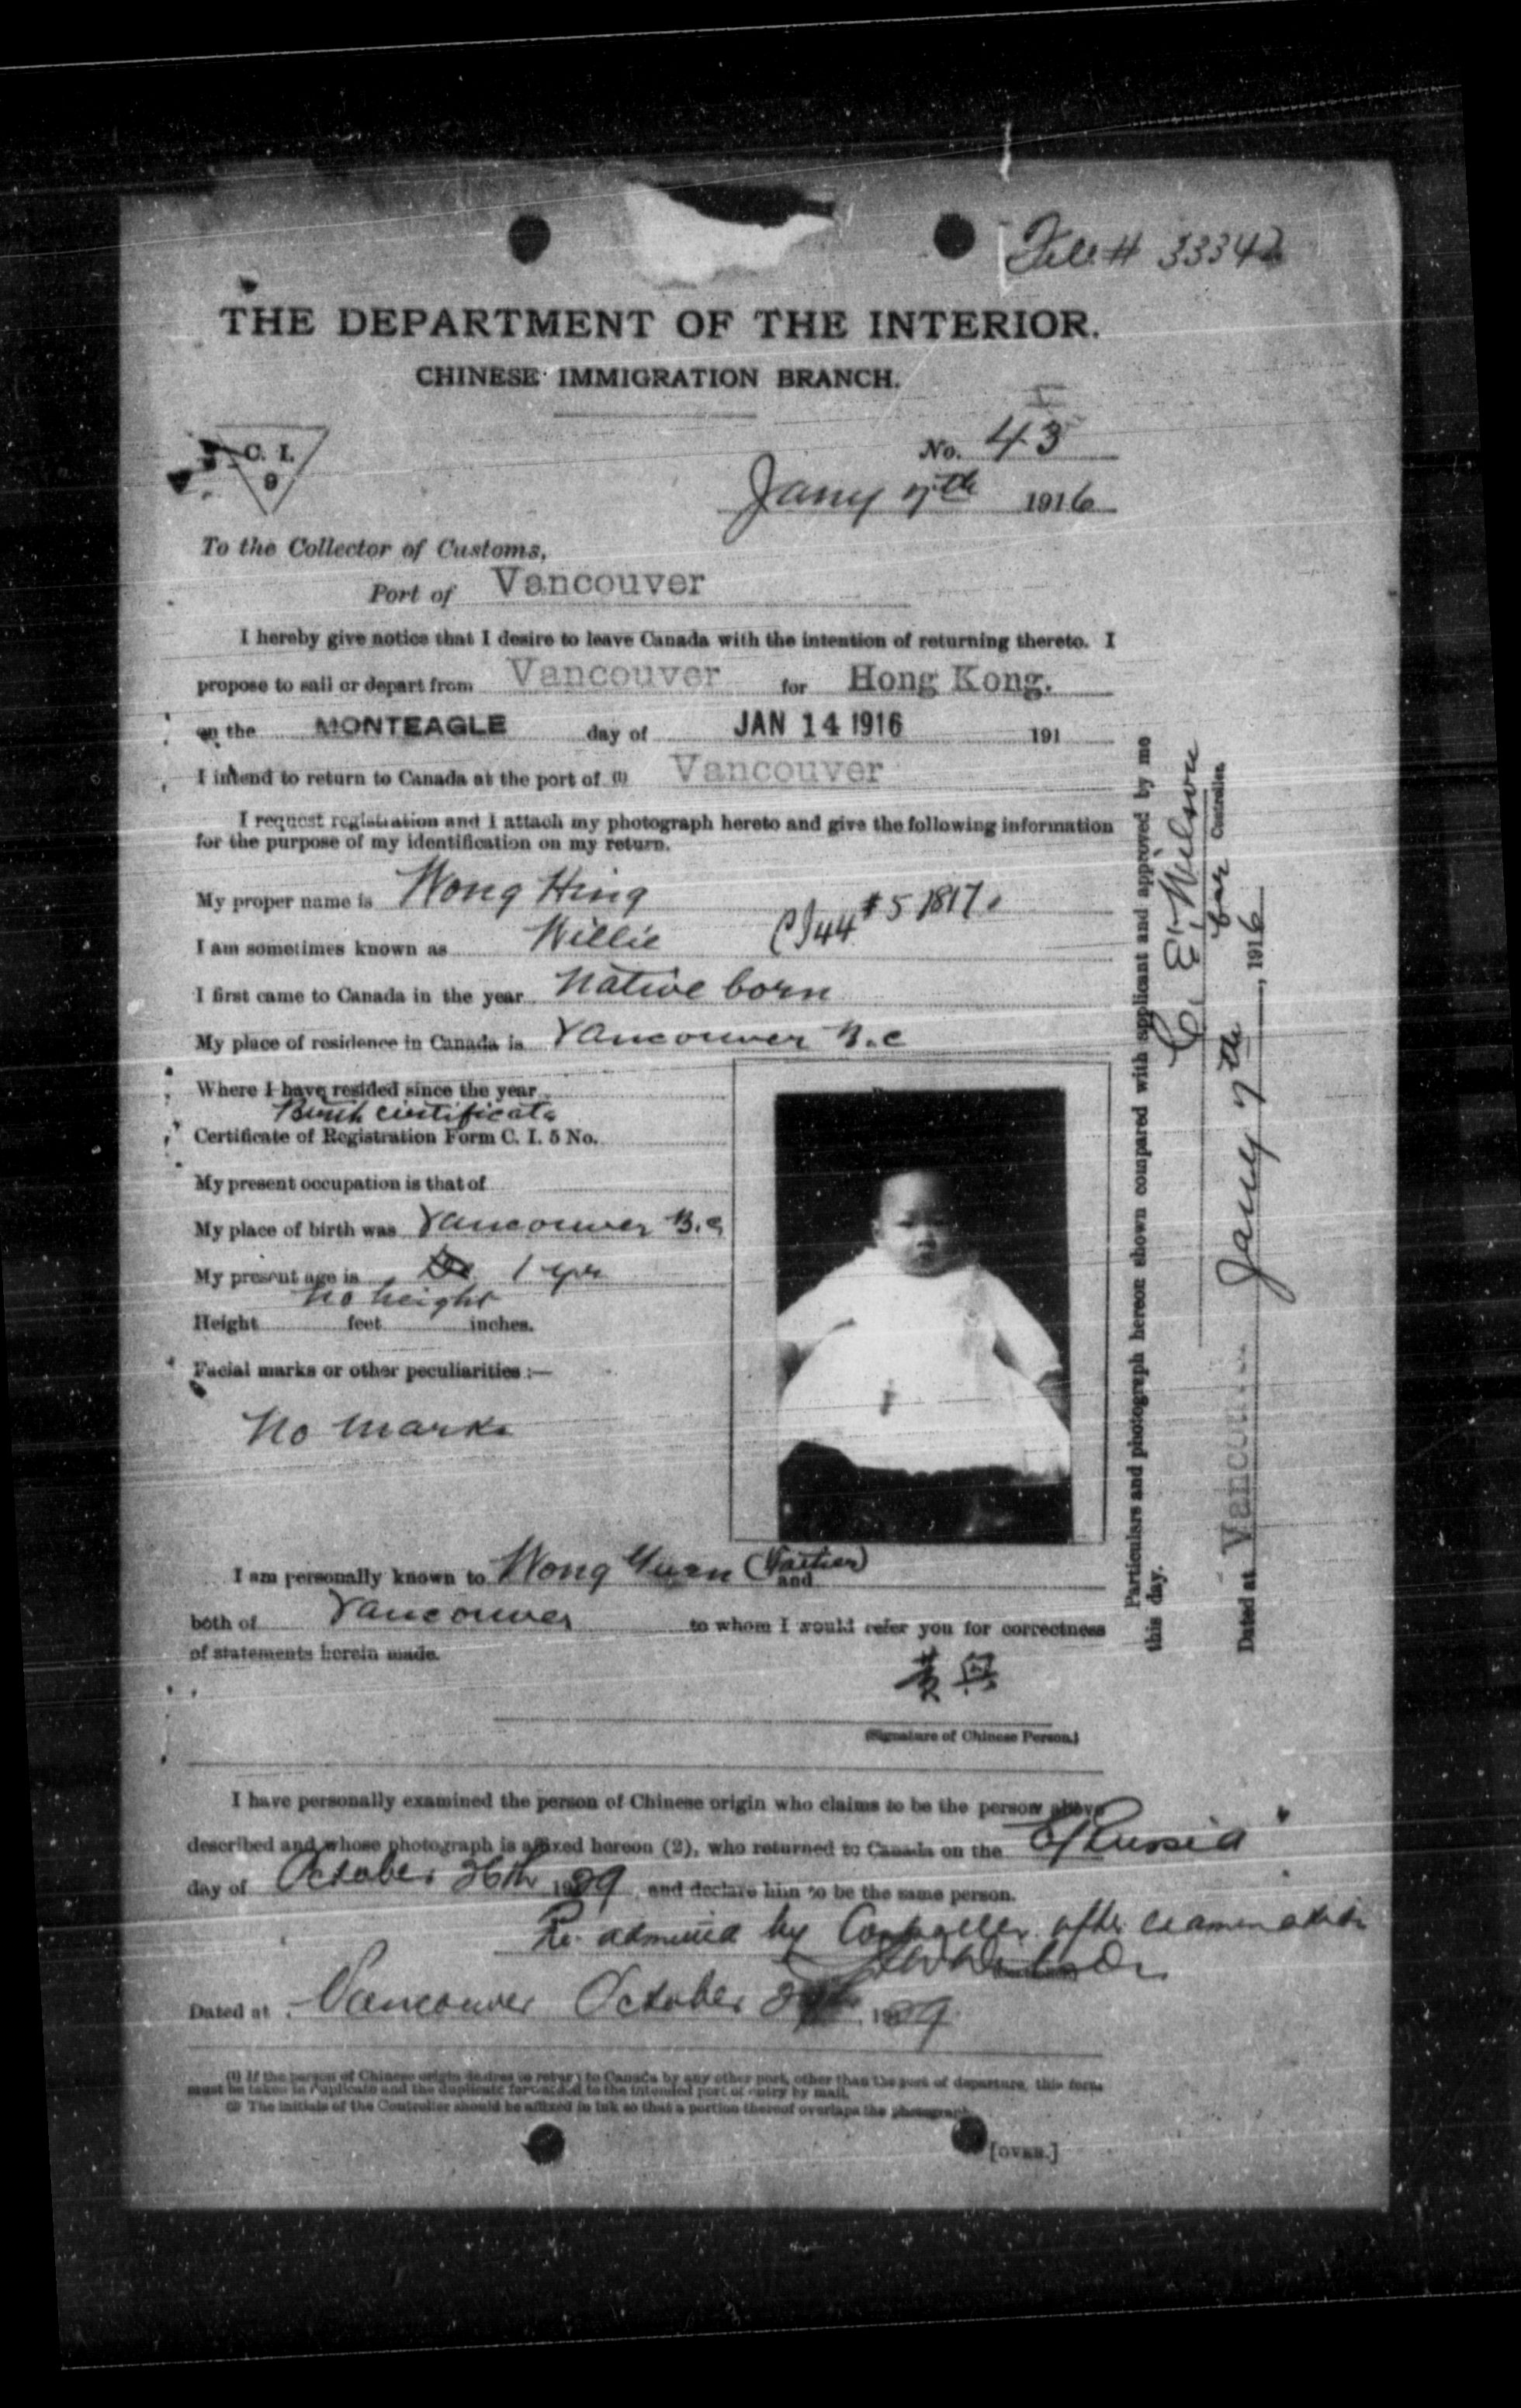 File # 33342
THE DEPARTMENT OF THE INTERIOR.
CHINESE IMMIGRATION BRANCH.
C. I.
9
No. 43
Jany 7th 1916
To the Collector of Customs,
Port of Vancouver
I hereby give notice that I desire to leave Canada with the intention of returning thereto. I
propose to sail or depart from Vancouver for Hong Kong.
on the MONTEAGLE day of JAN 14 1916 191
I intend to return to Canada at the port of (1) Vancouver
I request registration and I attach my photograph hereto and give the following information
for the purpose of my identification on my return.
My proper name is Wong Hing
CI 44 #51817
I am sometimes known as Willie
I first came to Canada in the year Native born
My place of residence in Canada is Vancouver B.C
Where I have resided since the year
Birth certificate
Certificate of Registration Form C. I. 5 No.
My present occupation is that of
My place of birth was Vancouver B.C
My present age is 1 yr
no height
Height feet inches.
Facial marks or other peculiarities :—
No marks
I am personally known to Wong Yuen (Father) and
both of Vancouver to whom I would refer you for correctness
of statements herein made.
黄興
(Signature of Chinese Person.)
Particulars and photograph hereon shown compared with applicant and approved by me
this day.
Controller.
Dated at Vancouver Jany 7th, 1916
I have personally examined the person of Chinese origin who claims to be the person above
described and whose photograph is affixed hereon (2), who returned to Canada on the E/Russia"
day of October 26th 1929, and declare him to be the same person.
Re-admitted by Controller after examination
Dated at Vancouver October 1929
(1) If the person of Chinese origin desires to return to Canada by any other port, other than the port of departure, this form
must be taken in duplicate and the duplicate forwarded to the intended port of entry by mail.
(2) The initials of the Controller should be affixed in ink so that a portion thereof overlaps the photograph.
[OVER.]